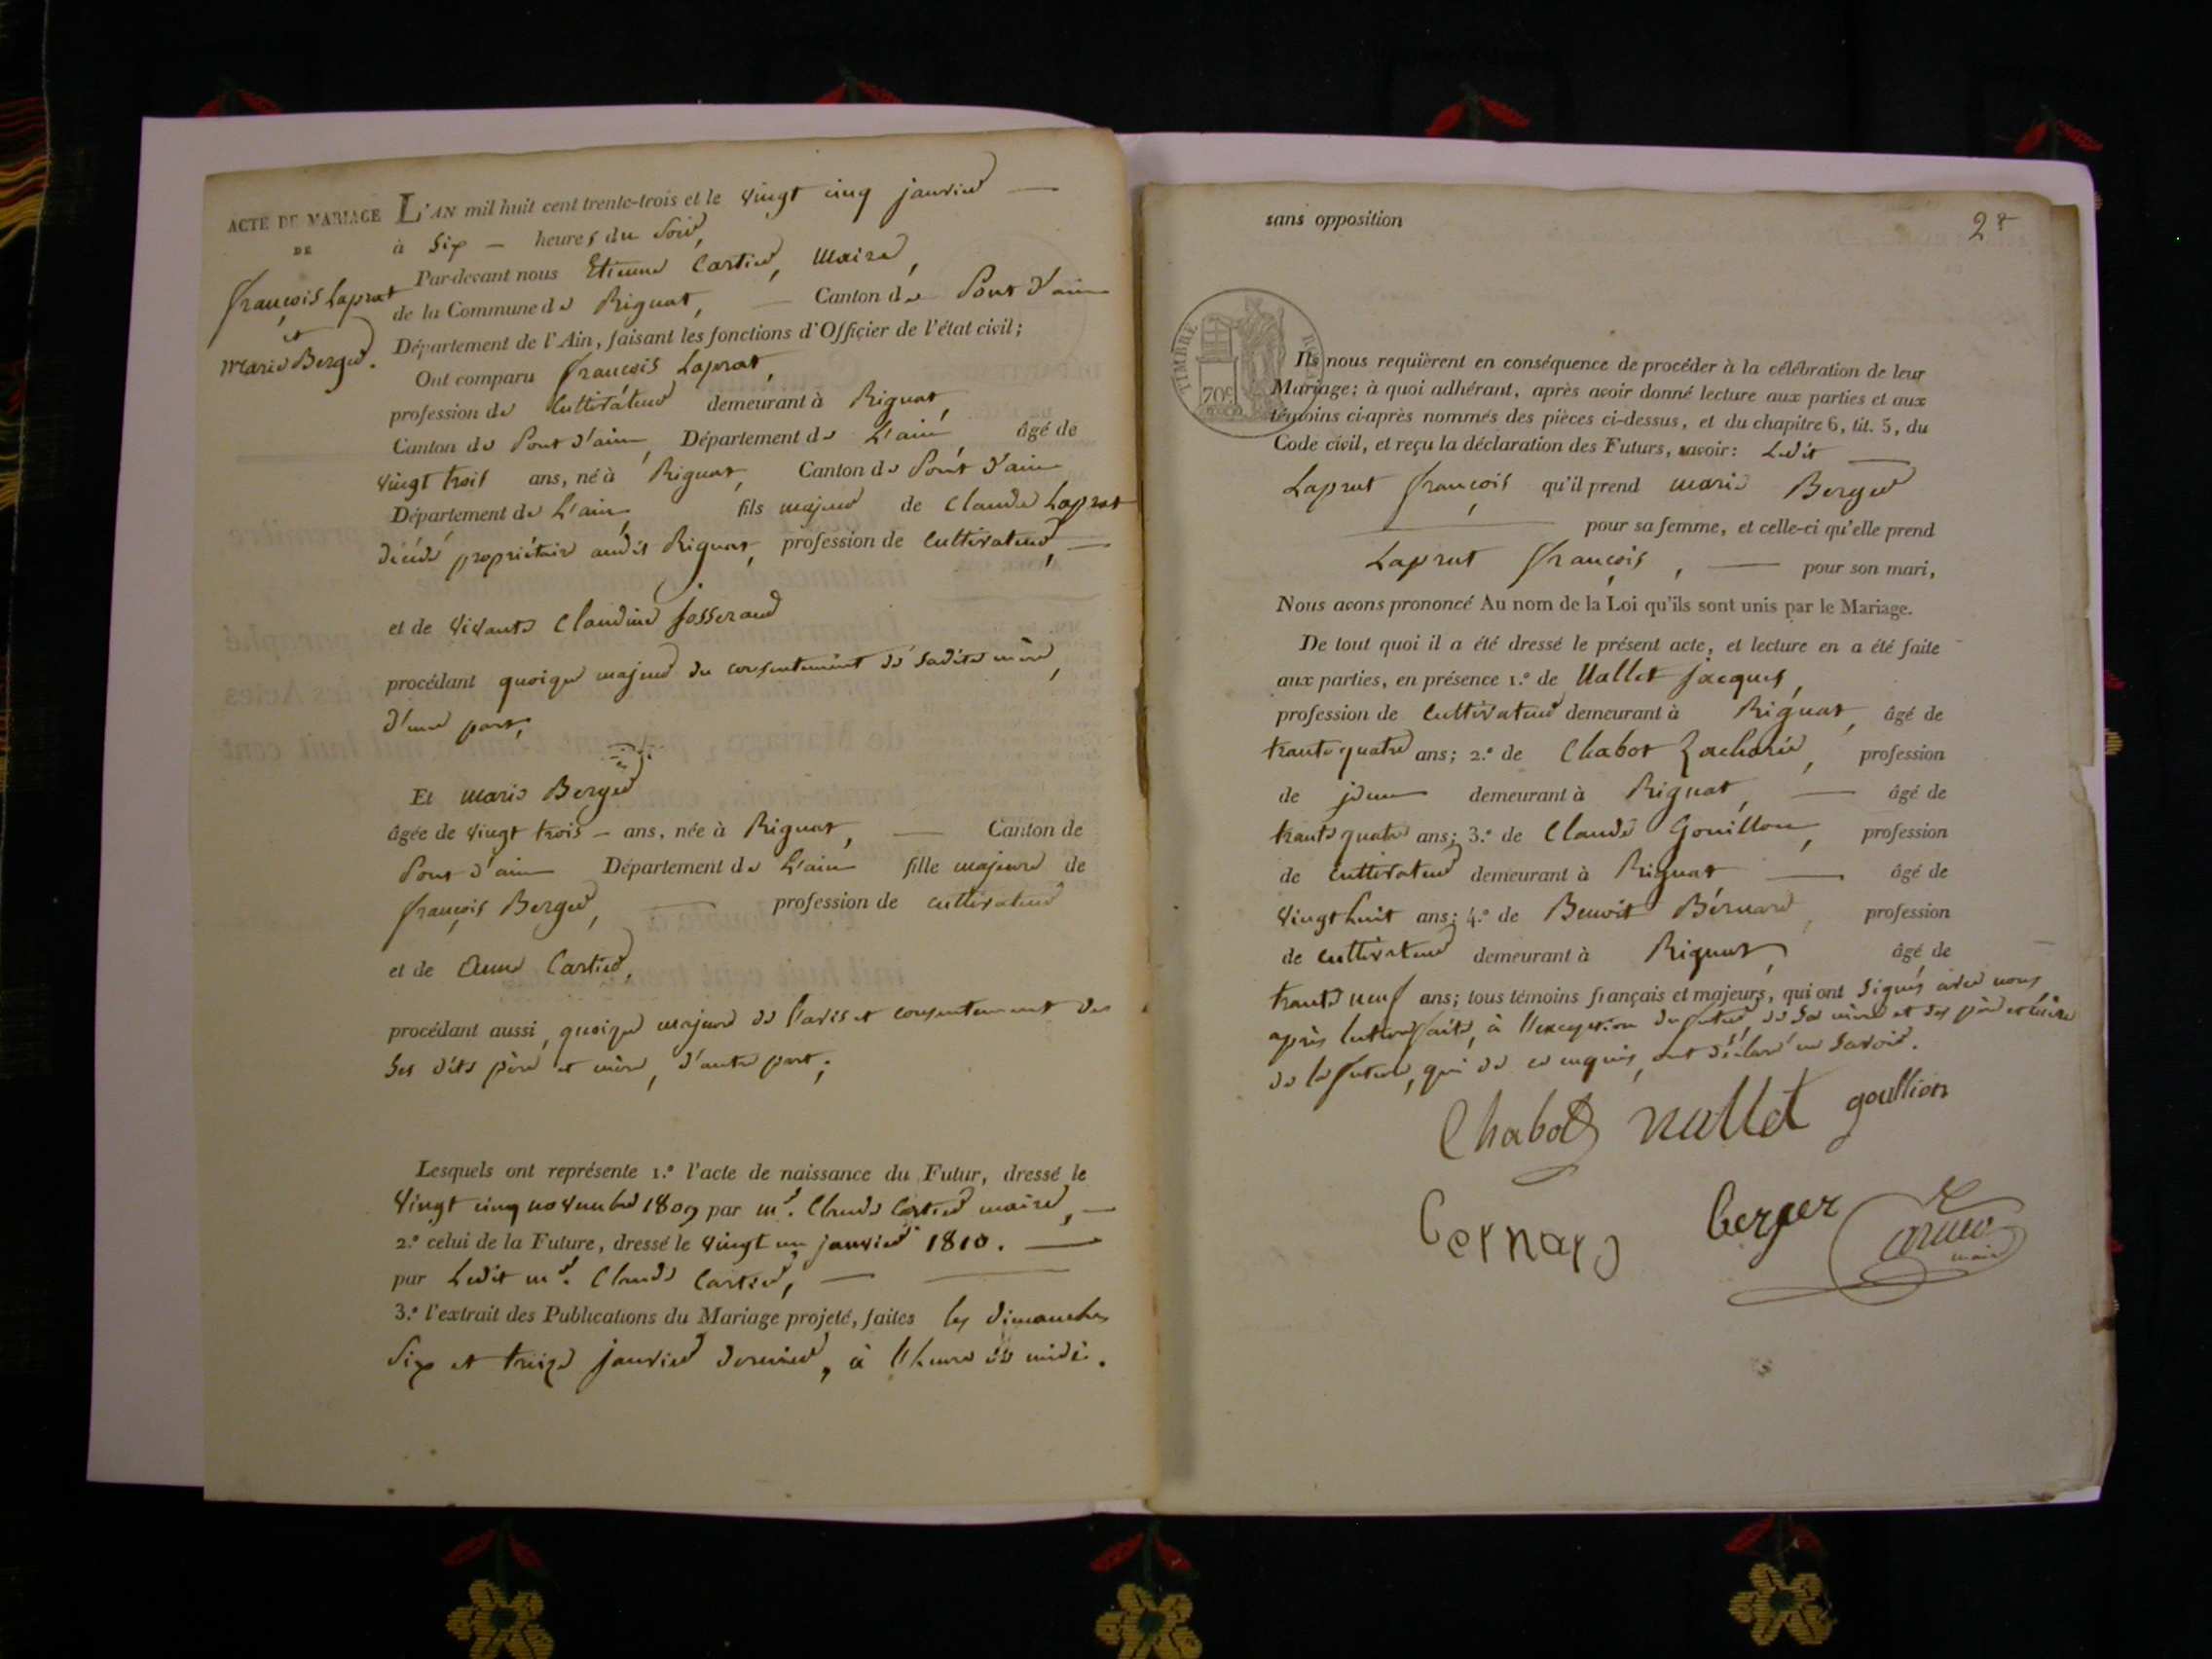 ACTE DE MARIAGE
DE
françois Laprat
et
marie Berger.
L'AN mil huit cent trente-trois et le vingt cinq janvier
à six heures du soir,
Par-devant nous Etienne Cartier, Maire,
de la Commune de Rignat, Canton de Pont d'ain
Département de l'Ain, faisant les fonctions d'Officier de l'état civil;
Ont comparu françois Laprat,
profession de Cultivateur demeurant à Rignat,
Canton de Pont d'ain, Département de L'ain, âgé de
vingt trois ans, né à Rignat, Canton de Pont d'ain
Département de L'ain, fils majeur de Claude Laprat
décédé propriétaire audit Rignat, profession de Cultivateur,
et de vivante Claudine Josserand
procédant quoique majeur du consentement de sadite mère,
d'une part;
Et marie Berger
âgée de vingt trois ans, née à Rignat, Canton de
Pont d'ain Département de L'ain fille majeure de
françois Berger, profession de cultivateur
et de Anne Cartier,
procédant aussi, quoique majeure de l'avis et consentement de
ses dits père et mère, d'autre part;
Lesquels ont représente 1.° l'acte de naissance du Futur, dressé le
vingt cinq novembre 1809 par mr. Claude Cartier maire,
2.° celui de la Future, dressé le vingt un janvier 1810.
par Ledit mr. Claude Cartier,
3.° l'extrait des Publications du Mariage projeté, faites les dimanches
six et treize janvier dernier, à l'heure de midi.
sans opposition
28
TIMBRE ROYAL
70c
Ils nous requièrent en conséquence de procéder à la célébration de leur
Mariage; à quoi adhérant, après avoir donné lecture aux parties et aux
témoins ci-après nommés des pièces ci-dessus, et du chapitre 6, tit. 5, du
Code civil, et reçu la déclaration des Futurs, savoir: Ledit
Laprat françois qu'il prend marie Berger
pour sa femme, et celle-ci qu'elle prend
Laprat françois, pour son mari,
Nous avons prononcé Au nom de la Loi qu'ils sont unis par le Mariage.
De tout quoi il a été dressé le présent acte, et lecture en a été faite
aux parties, en présence 1.° de Nallet jacques,
profession de cultivateur demeurant à Rignat, âgé de
trante quatre ans; 2.° de Chabot Zacharie, profession
de idem demeurant à Rignat, âgé de
trante quatre ans; 3.° de Claude Gouillon, profession
de cultivateur demeurant à Rignat âgé de
vingt huit ans; 4.° de Benoit Bérnard, profession
de cultivateur demeurant à Rignat, âgé de
trante neuf ans; tous témoins français et majeurs, qui ont signés avec nous
après lecture faite, à l'exception du futur, de sa mère et des père et mère
de la future, qui de ce enquis, ont déclaré ne savoir.
Chabot nallet goullion
bernard berger Cartier
maire